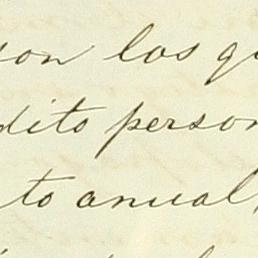 son los qu
dito person
to anual,